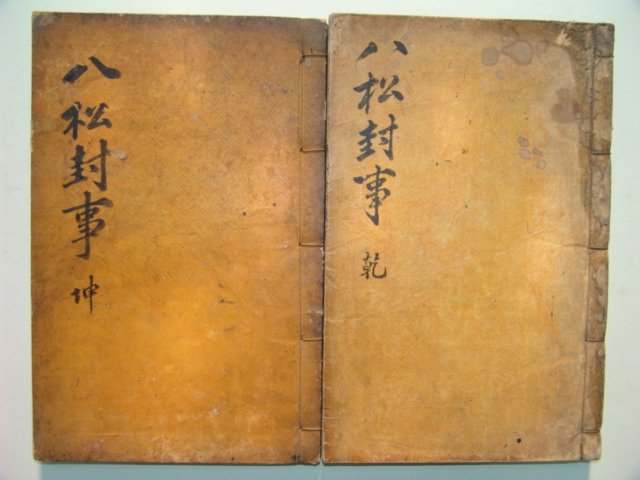 八松封事
乾
八松封事
坤